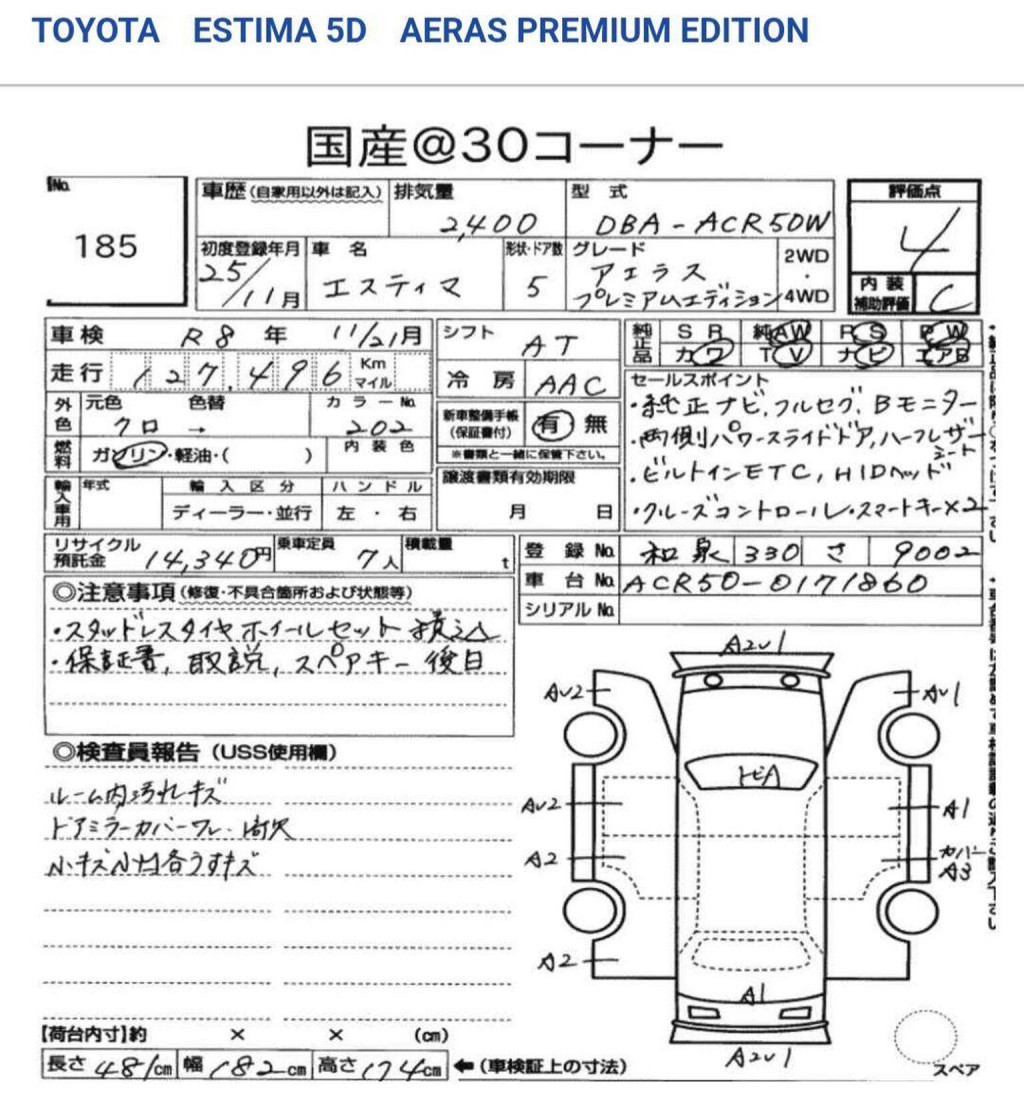 TOYOTA ESTIMA 5D AERAS PREMIUM EDITION
国産@30コーナー
No.
185
車歴(自家用以外は記入)
排気量
2,400
型式
DBA-ACR50W
初度登録年月
25/11月
車名
エスティマ
形状・ドア数
5
グレード
アエラス
プレミアムエディション
2WD
・
4WD
評価点
4
内装
補助評価
C
車検 R8年 11/21月
走行 127,496 Km
マイル
外色
元色 色替 カラーNo.
クロ → 202
燃料
ガソリン・軽油・( )
内装色
輸入車用
年式
輸入区分
ディーラー・並行
ハンドル
左・右
シフト AT
冷房 AAC
新車整備手帳
(保証書付)
有 無
※書類と一緒に保管下さい。
譲渡書類有効期限
月 日
純正品
SR 純AW PS PW
カワ TV ナビ エアB
セールスポイント
・純正ナビ,フルセグ,Bモニター
・両側パワースライドドア,ハーフレザー
シート
・ビルトインETC,HIDヘッド
・クルーズコントロール・スマートキー×2
リサイクル
預託金 14,340円
乗車定員 7人
積載量 t
登録No. 和泉 330 さ 9002
車台No. ACR50-0171860
シリアルNo.
◎注意事項(修復・不具合箇所および状態等)
・スタッドレスタイヤホイールセット積込
・保証書,取説,スペアキー後日
◎検査員報告(USS使用欄)
ルーム内汚れキズ
ドアミラーカバーワレ・
小キズ小凹各うすキズ
A2U1
AU2
AU1
トビA
AU2
A1
A2
カバー
A3
A2
A1
A2U1
スペア
【荷台内寸】約 × × (cm)
長さ 481cm 幅 182cm 高さ 174cm ←(車検証上の寸法)